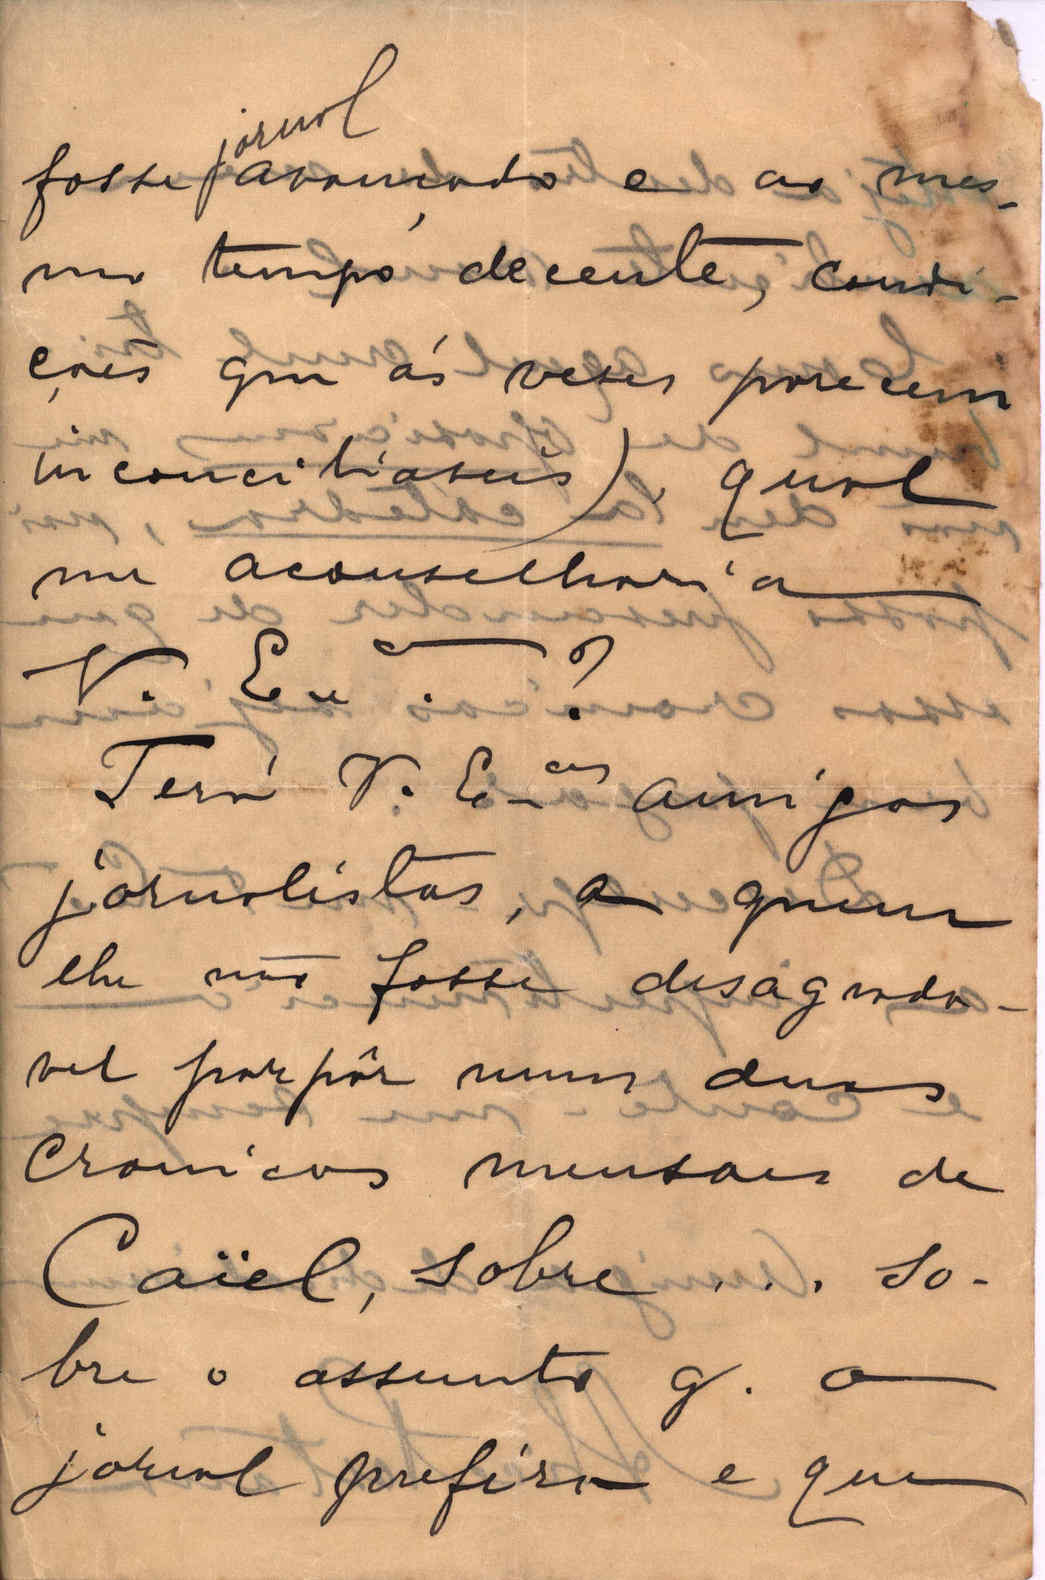 jornal
fosse avançado e ao mes-
mo tempo decente, condi-
ções que ás veses parecem
inconciliaveis), qual
me aconselharia
V. Ex.ª ?
Terá V. Ex.cia amigos
jornalistas, a quem
lhe não fosse desagrada-
vel porpôr umas duas
cronicas mensaes de
Caïel, sobre ... so-
bre o assunto q. o
jornal prefira e que